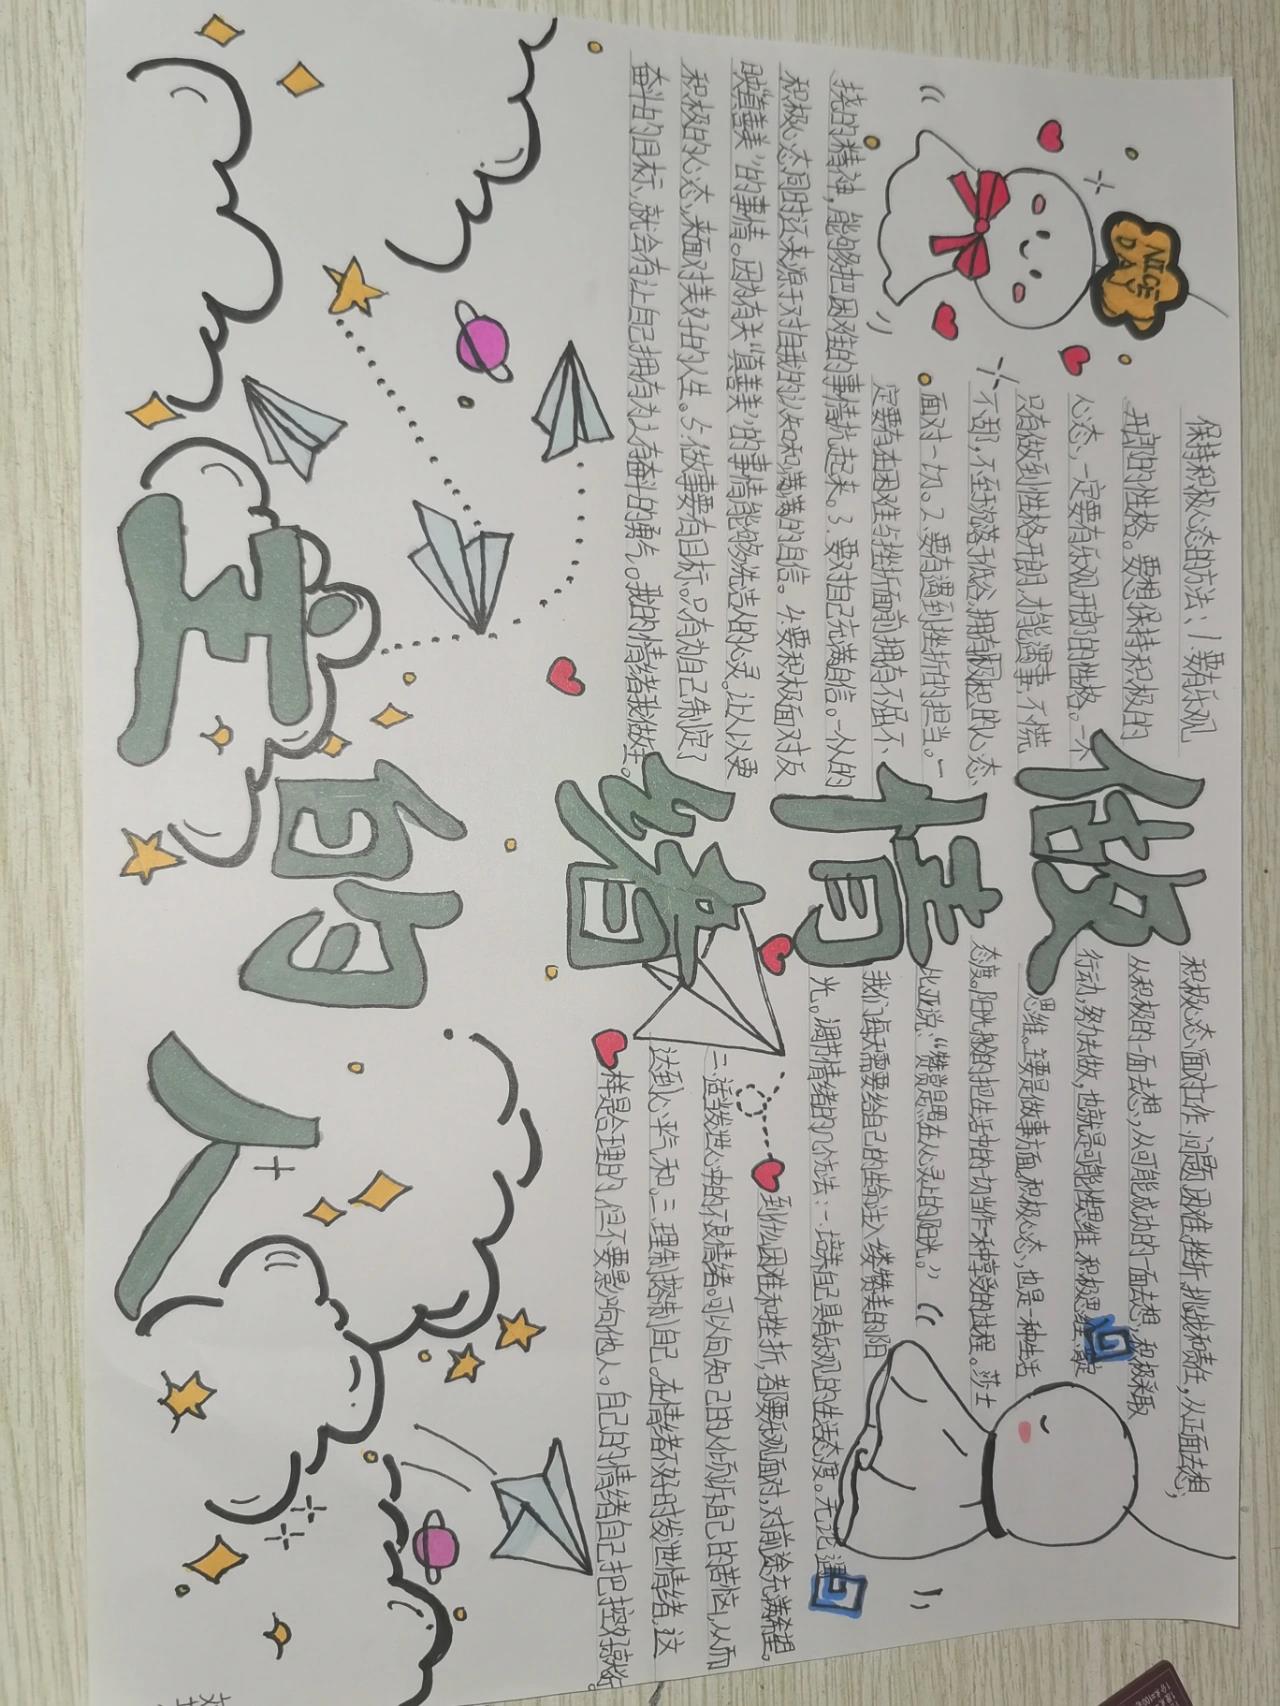 做情绪的主人
NICE
DAY
保持积极心态的方法:1.要有乐观
开郎的性格。要想保持积极的
心态,一定要有乐观开郎的性格。一个
只有做到性格开朗,才能遇事,不慌
不至于沉落于低谷,拥有极积的心态、
面对一切。2.要有遇到挫折的担当。一
定要有在困难与挫折面前拥有不屈不、
挠的精神,能够把困难的事情扰起来。3.要对自己充满自信。一个人的
积极心态同时还来源于对自我的认知和满满的自信。4.要积极面对反
映“真善美”的事情。因为有关“真善美”的事情能够洗洁人的心灵。让人以更
积极的心态,来面对美好的人生。5.做事要有目标。只有为自己制定了
奋斗的目标、就会有让自己拥有为之有奋斗的勇气。我的情绪我做主。
积极心态,面对工作、问题,困难,挫折,挑战和责任,从正面去想,
从积极的一面去想,从可能成功的一面去想,积极采取
行动,努力去做,也就是可能性思维,积极思维,肯定
思维。主要是做事方面。积极心态,也是一种生活
态度。阳光般的把生活中的一切当作一种享受的过程。莎士
比亚说:“赞赏是照在人心灵上的阳光。”
我们每天需要给自己的生命注入一缕赞美的阳
光。调节情绪的几个方法:一.培养自己具有乐观的生活态度。无论遇
到什么困难和挫折,都要乐观面对,对前途充满希望。
二.适当发泄心中的不良情绪。可以向知己的人倾诉自己的苦恼,从而
达到心平气和。三.理制控制自己。在情绪不好时发泄情绪,这
样是合理的,但不要影响他人。自己的情绪自己把控